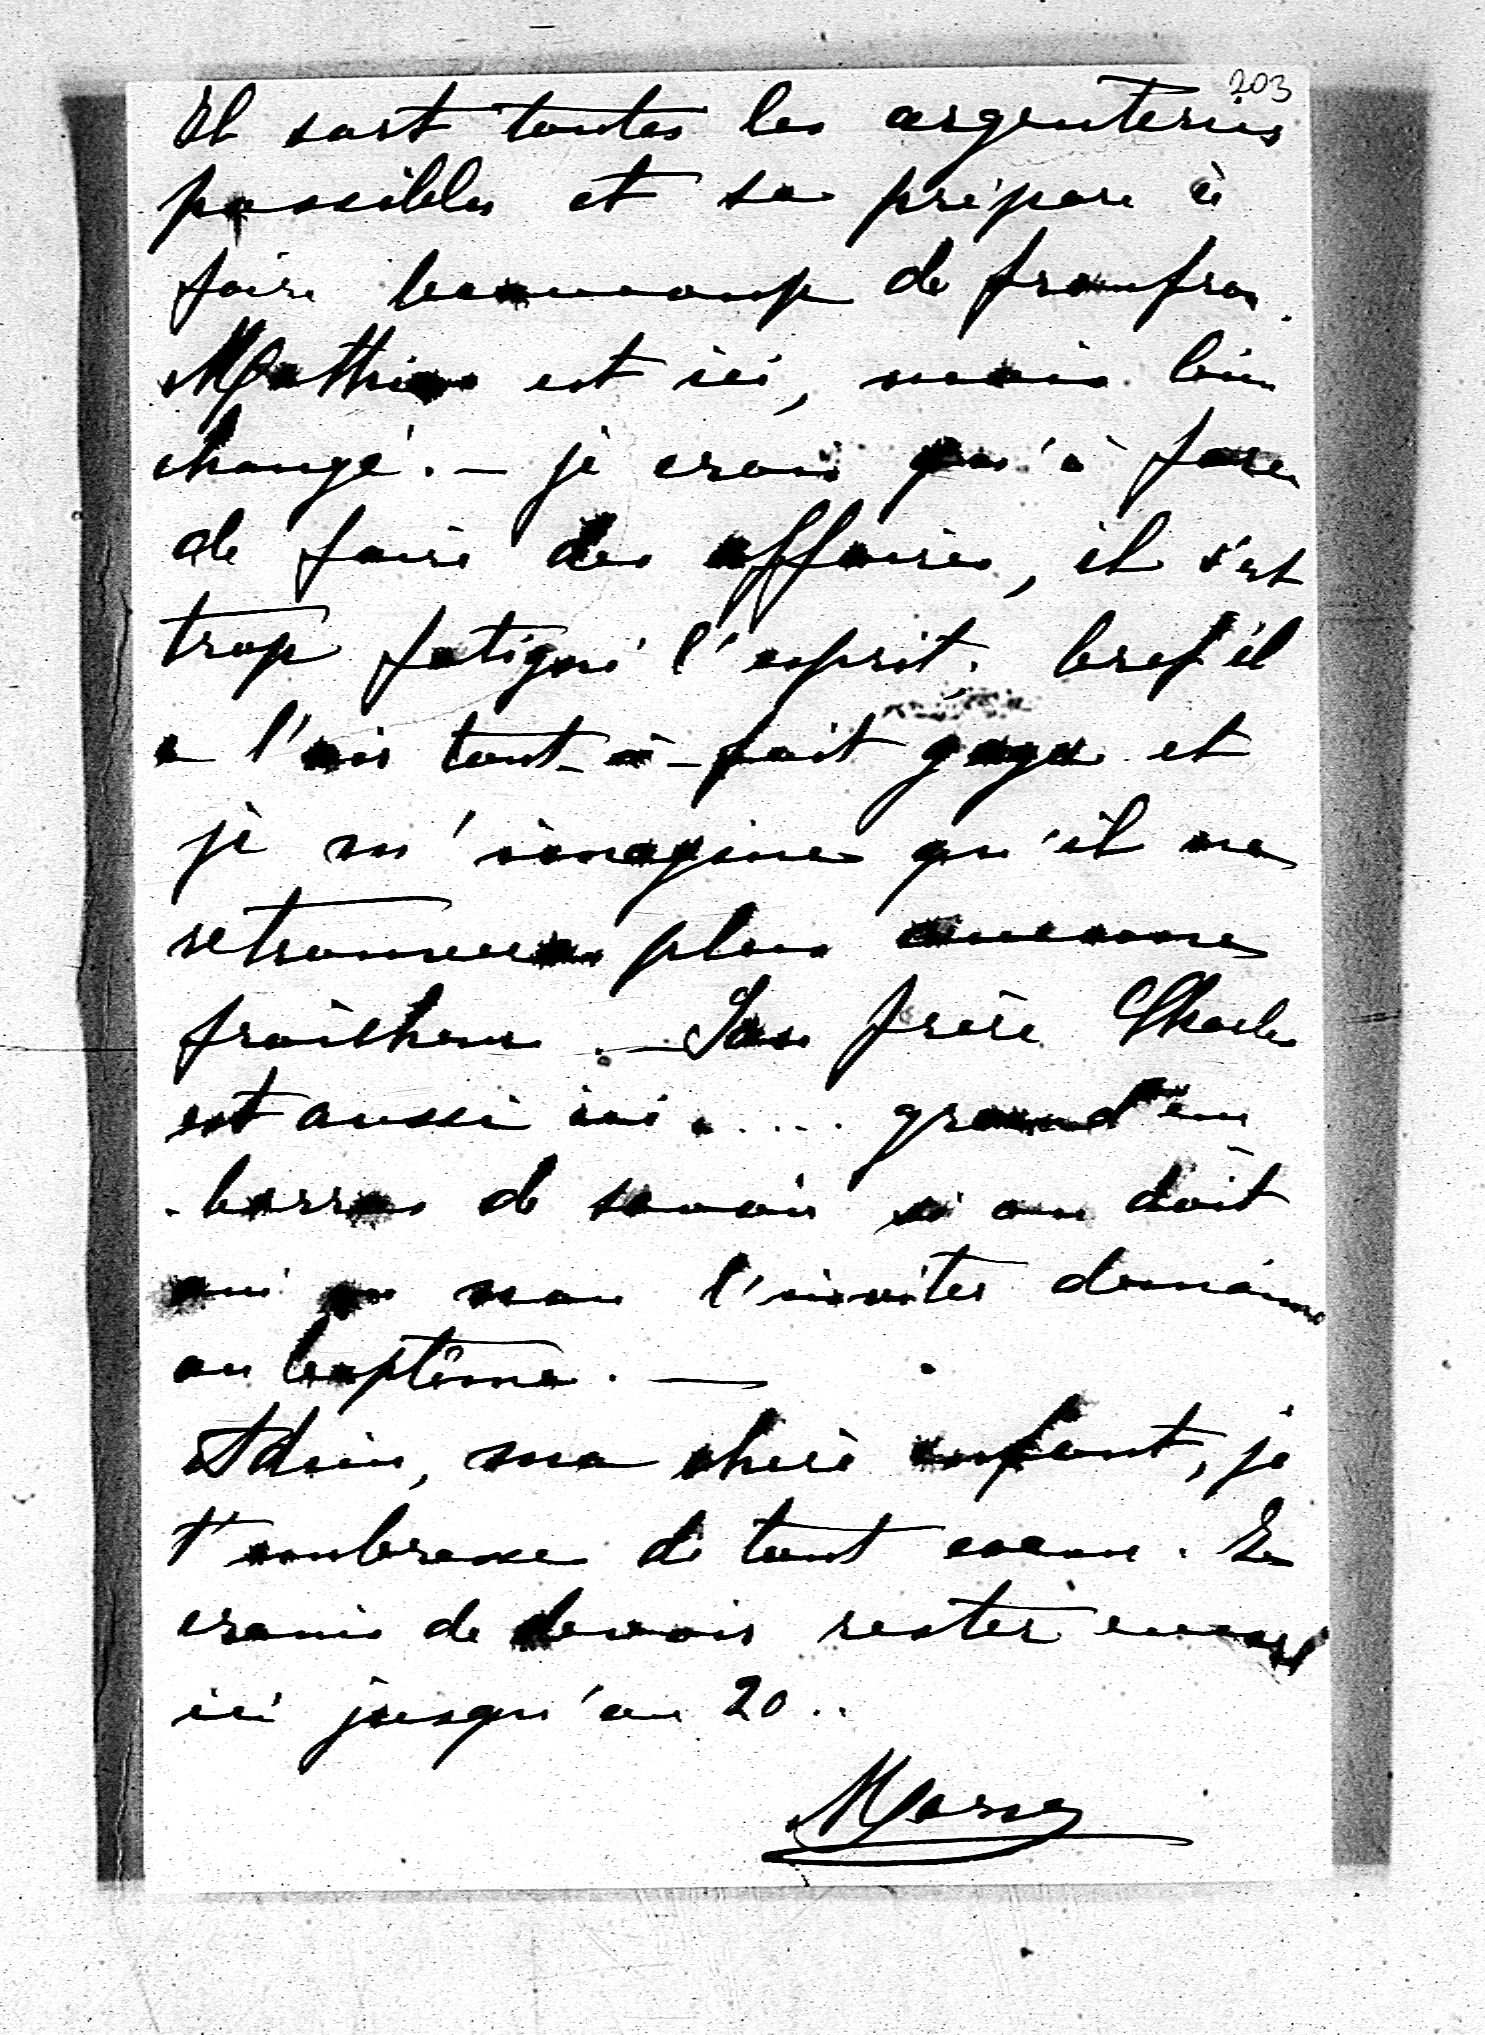 203
Il sort toutes les argenteries
possibles et se prépare à
faire beaucoup de froufrou.
Mathieu est ici, mais bien
changé. — je crois qu'à force
de faire des affaires, il s'est
trop fatigué l'esprit. bref il
a l'air tout-à-fait gaga et
je m'imagine qu'il ne
retrouvera plus aucune
fraîcheur. — Son frère Charles
est aussi ici..... grand em
-barras de savoir si on doit
oui ou non l'inviter demain
au baptême. —
Adieu, ma chère enfant, je
t'embrasse de tout coeur. Je
crains de devoir rester encore
ici jusqu'au 20..